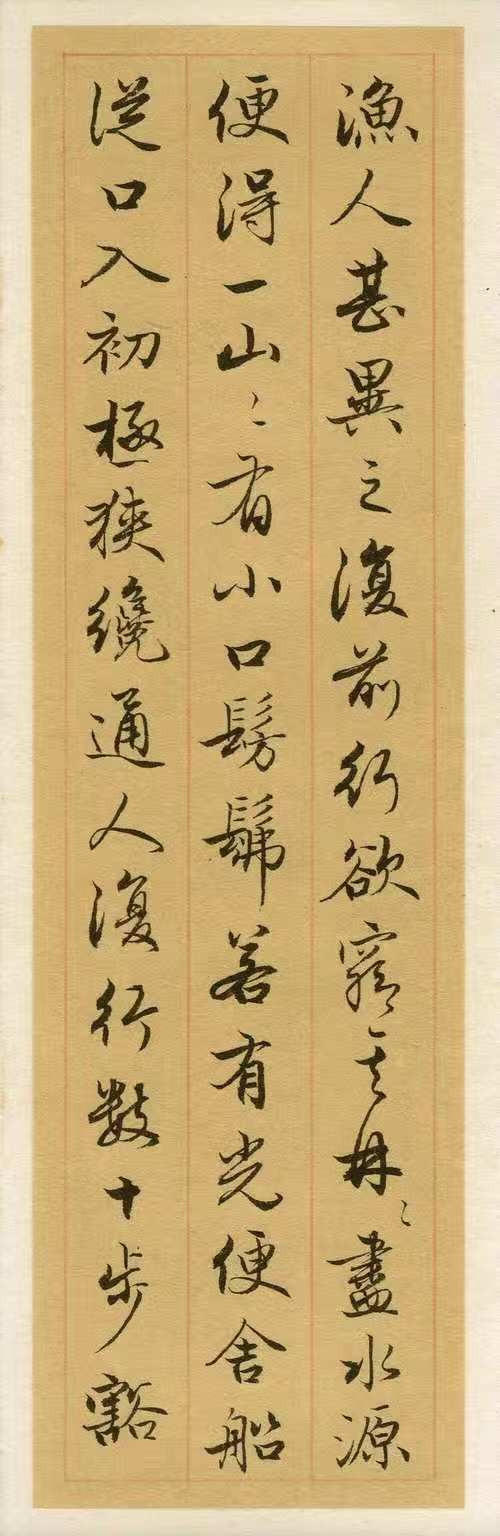 漁人甚異之復前行欲窮其林〻盡水源
便得一山〻有小口髣髴若有光便舍船
従口入初極狹纔通人復行數十步豁